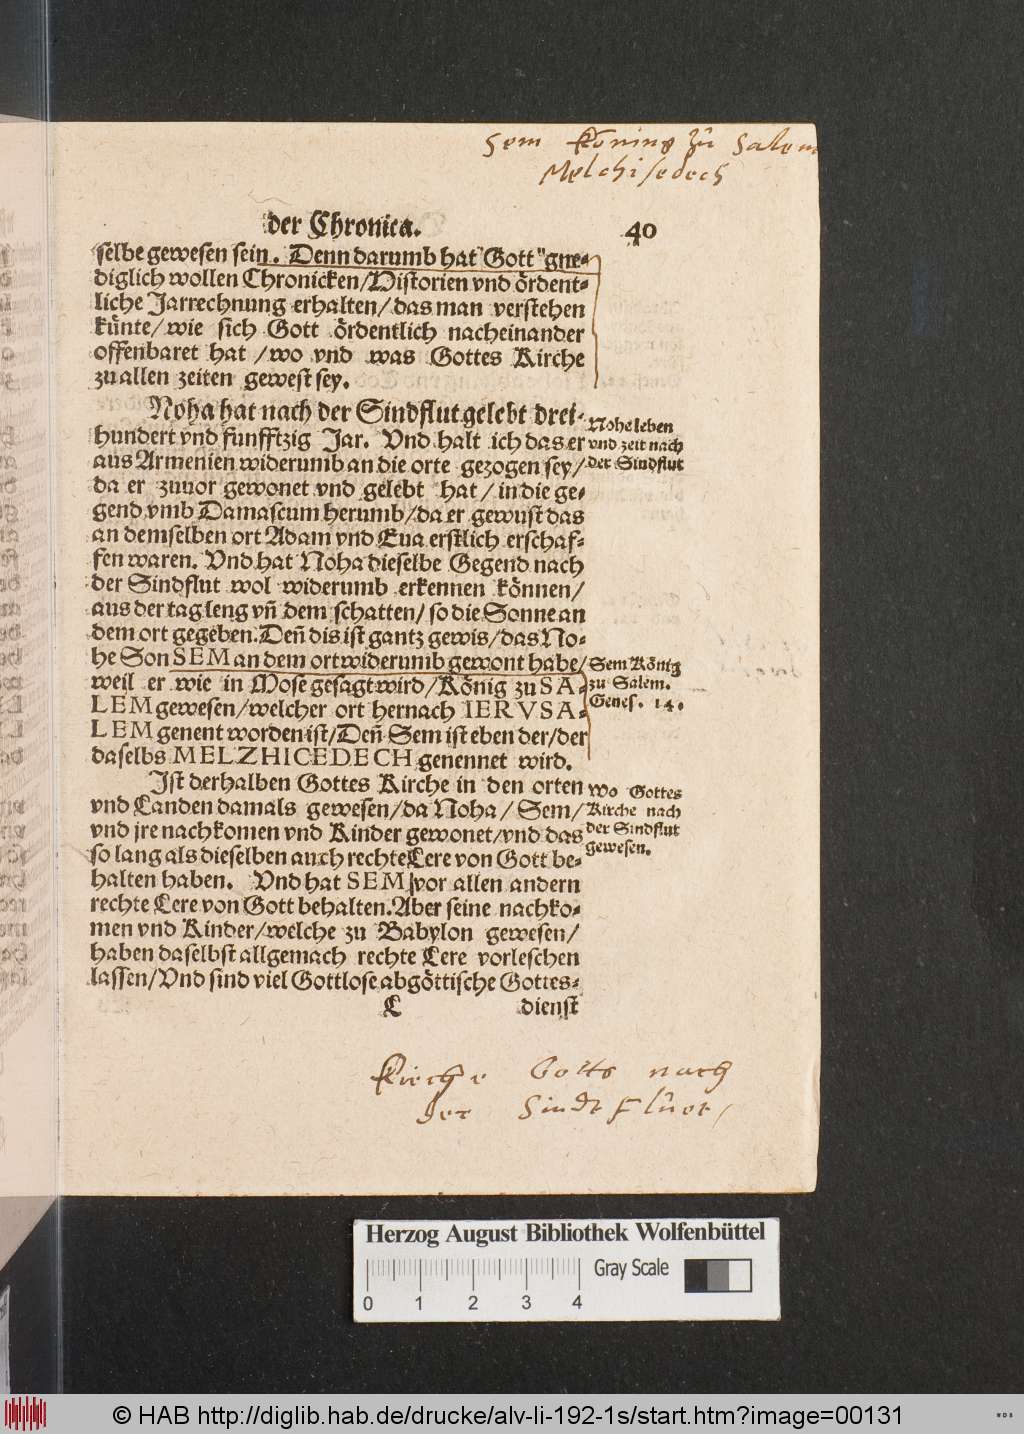 Sem Köning zů Salem
Melchisedech
der Chronica. 40
selbe gewesen sein. Denn darumb hat Gott gne-
diglich wollen Chronicken/Historien vnd ördent-
liche Jarrechnung erhalten/das man verstehen
künte/wie sich Gott ördentlich nacheinander
offenbaret hat/wo vnd was Gottes Kirche
zu allen zeiten gewest sey.
Noha hat nach der Sindflut gelebt drei-
hundert vnd funfftzig Jar. Vnd halt ich das er
aus Armenien widerumb an die orte gezogen sey/
da er zuuor gewonet vnd gelebt hat/in die ge-
gend vmb Damascum herumb/da er gewust das
an demselben ort Adam vnd Eua erstlich erschaf-
fen waren. Vnd hat Noha dieselbe Gegend nach
der Sindflut wol widerumb erkennen können/
aus der tag leng vñ dem schatten/so die Sonne an
dem ort gegeben. Deñ dis ist gantz gewis/das No-
he Son SEM an dem ort widerumb gewont habe/
weil er wie in Mose gesagt wird/König zu SA-
LEM gewesen/welcher ort hernach IERVSA-
LEM genent worden ist/Deñ Sem ist eben der/der
daselbs MELZHICEDECH genennet wird.
Ist derhalben Gottes Kirche in den orten
vnd Landen damals gewesen/da Noha/Sem/
vnd jre nachkomen vnd Kinder gewonet/vnd das
so lang als dieselben auch rechte Lere von Gott be-
halten haben. Vnd hat SEM vor allen andern
rechte Lere von Gott behalten. Aber seine nachko-
men vnd Kinder/welche zu Babylon gewesen/
haben daselbst allgemach rechte Lere vorleschen
lassen/Vnd sind viel Gottlose abgöttische Gottes-
C dienst
Nohe leben
vnd zeit nach
der Sindflut
Sem König
zu Salem.
Genes. 14.
Wo Gottes
Kirche nach
der Sindflut
gewesen.
Kirche Gotts nach
der Sindt Flůet/
Herzog August Bibliothek Wolfenbüttel
Gray Scale
0 1 2 3 4
© HAB http://diglib.hab.de/drucke/alv-li-192-1s/start.htm?image=00131
WDB